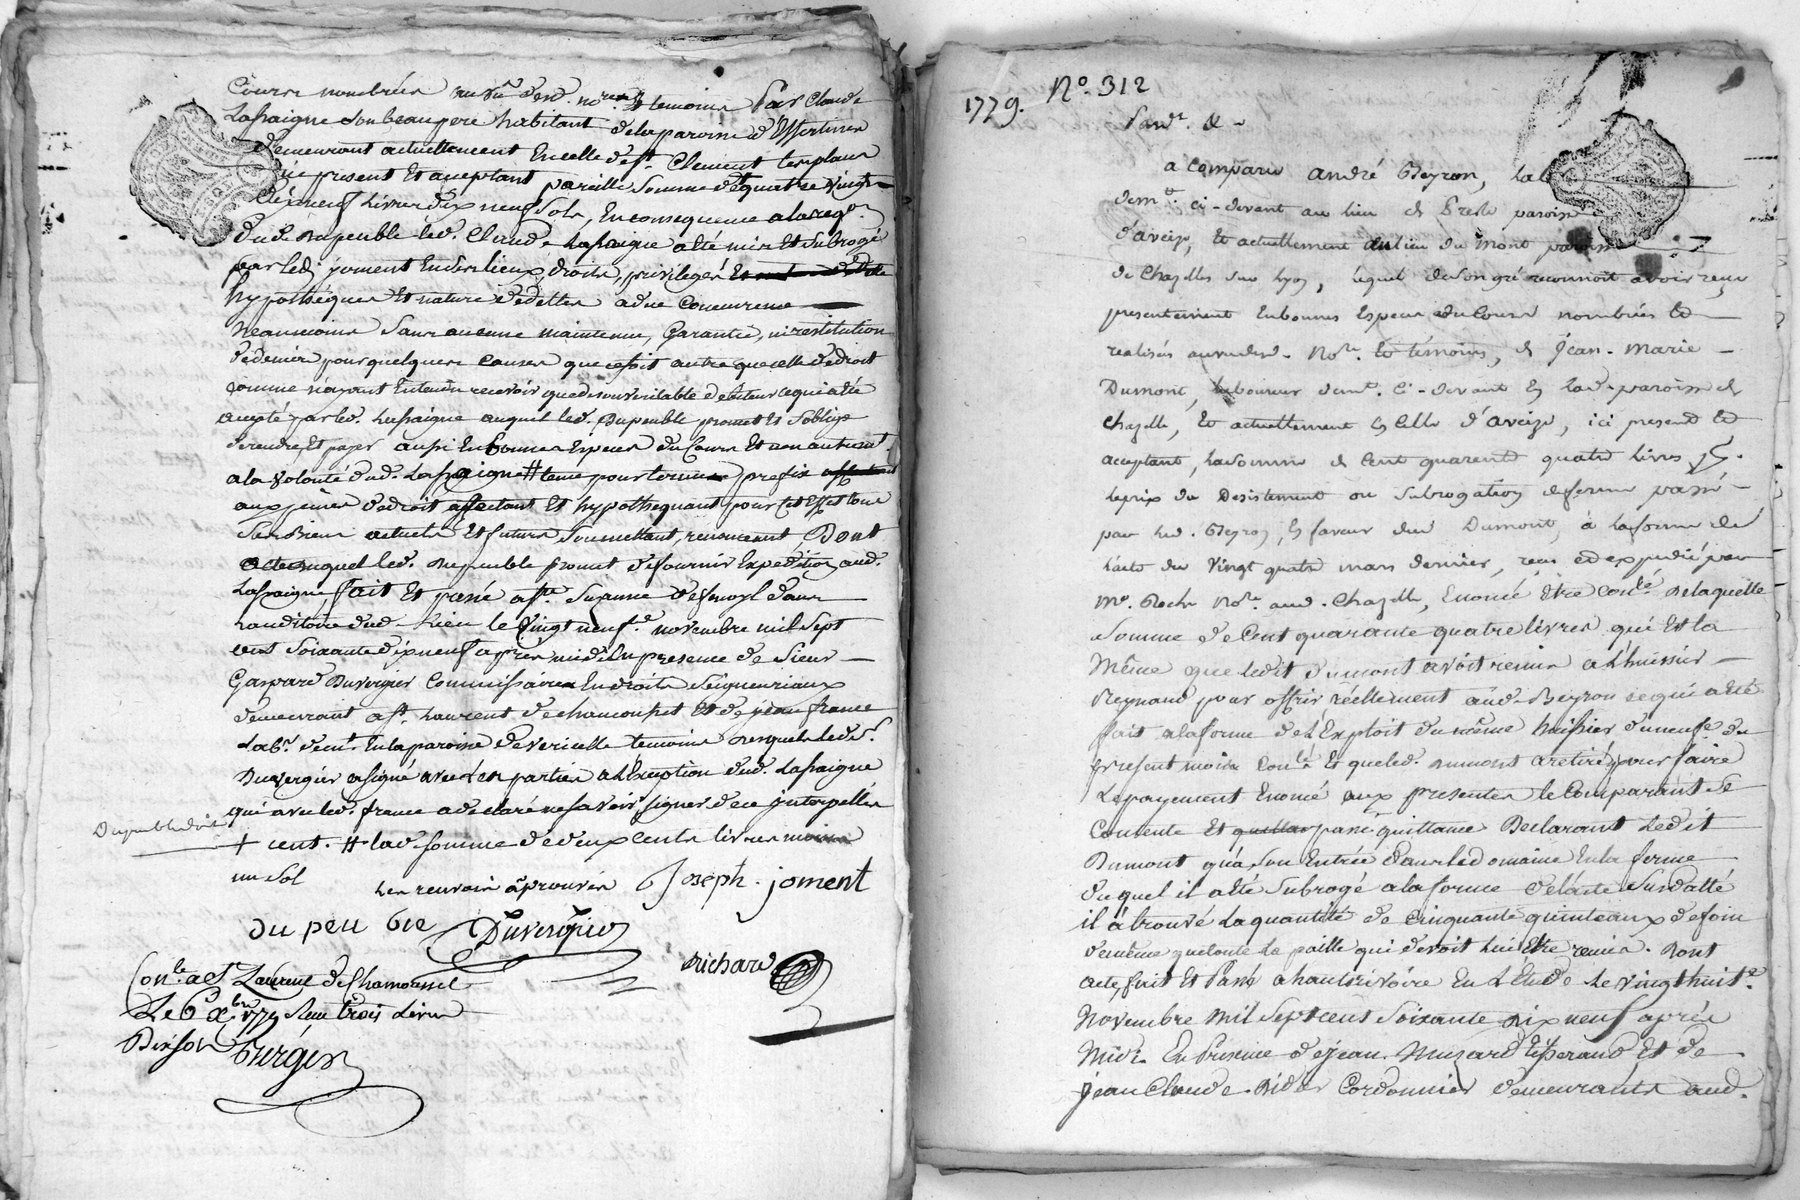 Cource nombrées au vu desd. nores & temoins Par Claude
Lassaigne son beau pere habitant de la paroisse d'Essertines
demeurant actuellement en celle de st. Clement les places
ici present et acceptant pareille somme de quatre vingt
dix neuf livres dix neuf sols, En consequence a la reqon.
dud. Dupeuble led. Claude Lassaigne a été mis et subrogé
par led. joment en ses lieux, droits, privileges et
hypothèques et nature de dettes a due concurrence
neanmoins sans aucune maintenue, Garantie, ni restitution
de deniers pour quelques causes que ce soit autre que celle de droit
comme n'ayant entendu recevoir que de son veritable debiteur ce qui a été
accepté par led. Lassaigne auquel led. Dupeuble promet et s'oblige
de rendre et payer aussi en bonnes Especes de Cours et non autremt.
a la volonté dud. Lassaigne # tems pour terme prefix
aux peines de droit affectant et hypothequant pour cet effet tous
ses biens actuels et futurs soumettant, renoncant, Dont
acte auquel led. Dupeuble promet de fournir Expedition aud.
Lassaigne fait et passé a ste. Suzanne d'essenoyl dans
l'auditoire dud. Lieu le vingt neuf e. novembre mil sept
cent soixante dix neuf après midi En presence de Sieur
Gaspard Duvergier Commissaire En droits Seigneuriaux
demeurant a st. Laurent de chamousset et de jean france
Labr. demt. En la paroisse de vericelle temoins Desquels led. sr.
Duvergier a signé avec les parties a l'Exception dud. Lassaigne
qui avec led. france a declaré ne savoir signer de ce interpellés
Dupeuble doit
+ cent. # lad. somme de deux cents livres moins
un sol
Les renvois aprouvés Joseph. joment
du peu ble Duvergier
Richard
Conlé. a St. Laurent de Chamousset
Le 6 xbre 1779 Reçu trois Livres
Dix sols Burgin
1779. No. 312
Pardt. &
a Comparu andré Peyron, lab
demt. ci-devant au lieu de paroisse
d'aveize, Et actuellement au lieu du Mont paroisse
de Chazelles sur Lyon, lequel de son gré reconnoit avoir reçu
presentement En bonnes Especes de Cours nombrées Et
realisés au vu desd. Nore. Et témoins, de Jean-Marie
Dumont, laboureur demt. ci-devant En lad. paroisse de
Chazelle, Et actuellement En Celle d'aveize, ici present Et
acceptant, La somme de Cent quarente quatre livres pr.
le prix du Desistement ou Subrogation de ferme passé
par led. Peyron, En faveur dud. Dumont, à la forme de
l'acte du Vingt quatre mars dernier, reçu et expedié par
Me. Roche Nore. aud. Chazelle, Enoncé être conlé. De laquelle
somme de Cent quarante quatre livres qui Est la
Même que ledit Dumont avoit remis a L'huissier
Reynaud pour offrir réellement aud. Peyron ce qui a été
fait a la forme de L'Exploit du même huissier du neuf e. du
present mois Conlé. Et que led. Dumont a retiré pour faire
Le payement Enoncé aux presentes le Comparant se
Contente Et passe quittance Declarant Ledit
Dumont qu'a son Entrée dans le domaine En la ferme
duquel il a été subrogé a la forme de l'acte susdatté
il a trouvé La quantité de cinquante quinteaux de foin
de même que toute La paille qui devoit Lui Etre remis. Dont
acte, fait Et Passé a hauterivoire En L'Etude Le vingt huit e.
Novembre Mil Sept cent soixante Dix neuf après
Midi. En Presence de jean Musard tisserand Et de
jean Claude Didier Cordonnier demeurants aud.